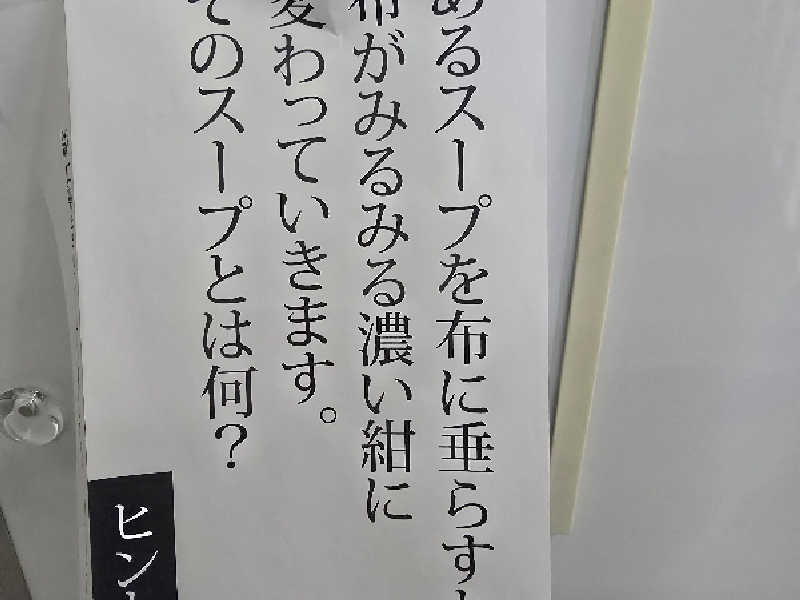 あるスープを布に垂らすと
布がみるみる濃い紺に
変わっていきます。
そのスープとは何?
ヒント